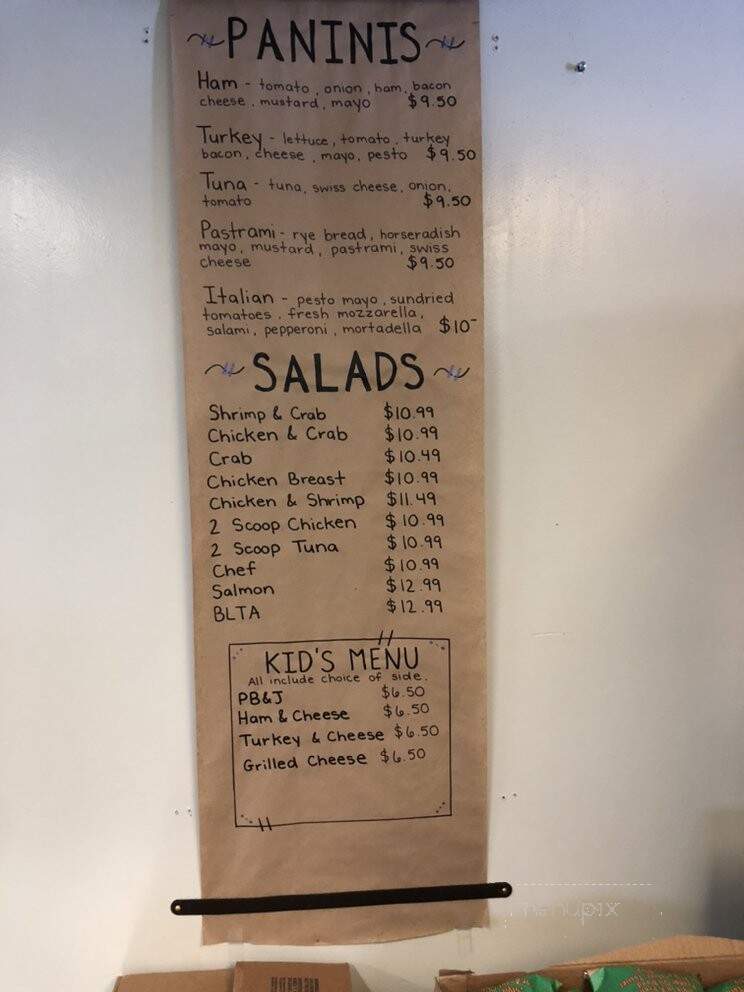 PANINIS
Ham - tomato, onion, ham, bacon
cheese, mustard, mayo $9.50
Turkey - lettuce, tomato, turkey
bacon, cheese, mayo, pesto $9.50
Tuna - tuna, swiss cheese, onion,
tomato $9.50
Pastrami - rye bread, horseradish
mayo, mustard, pastrami, swiss
cheese $9.50
Italian - pesto mayo, sundried
tomatoes, fresh mozzarella,
salami, pepperoni, mortadella $10-
SALADS
Shrimp & Crab $10.99
Chicken & Crab $10.99
Crab $10.49
Chicken Breast $10.99
Chicken & Shrimp $11.49
2 Scoop Chicken $10.99
2 Scoop Tuna $10.99
Chef $10.99
Salmon $12.99
BLTA $12.99
KID'S MENU
All include choice of side.
PB&J $6.50
Ham & Cheese $6.50
Turkey & Cheese $6.50
Grilled Cheese $6.50
menupix